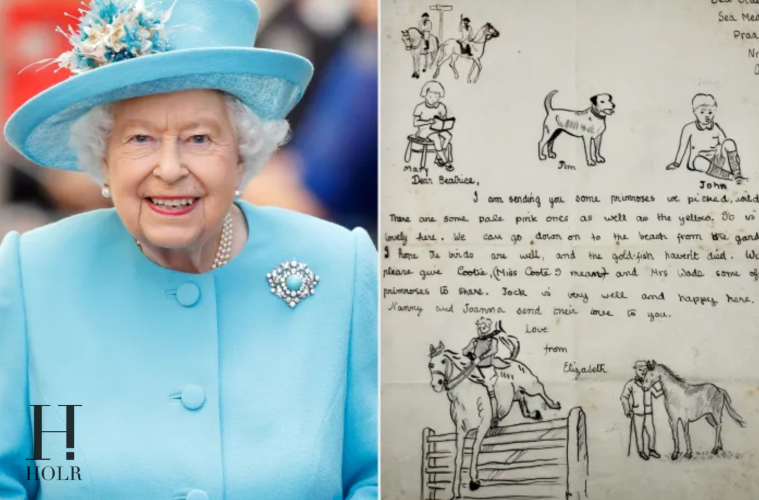 H
HOLR
Sea Mea
Praa
Mary
Jim
John
Dear Beatrice,
I am sending you some primroses we picked,
There are some pale pink ones as well as the yellow. It is
lovely here. We can go down on to the beach from the gard
I hope the birds are well, and the gold-fish haven't died.
please give Cootie, (Miss Coote I meant) and Mrs Wade some of
primroses to share. Jock is very well and happy here.
Nanny and Joanna send their love to you.
Love
from
Elizabeth